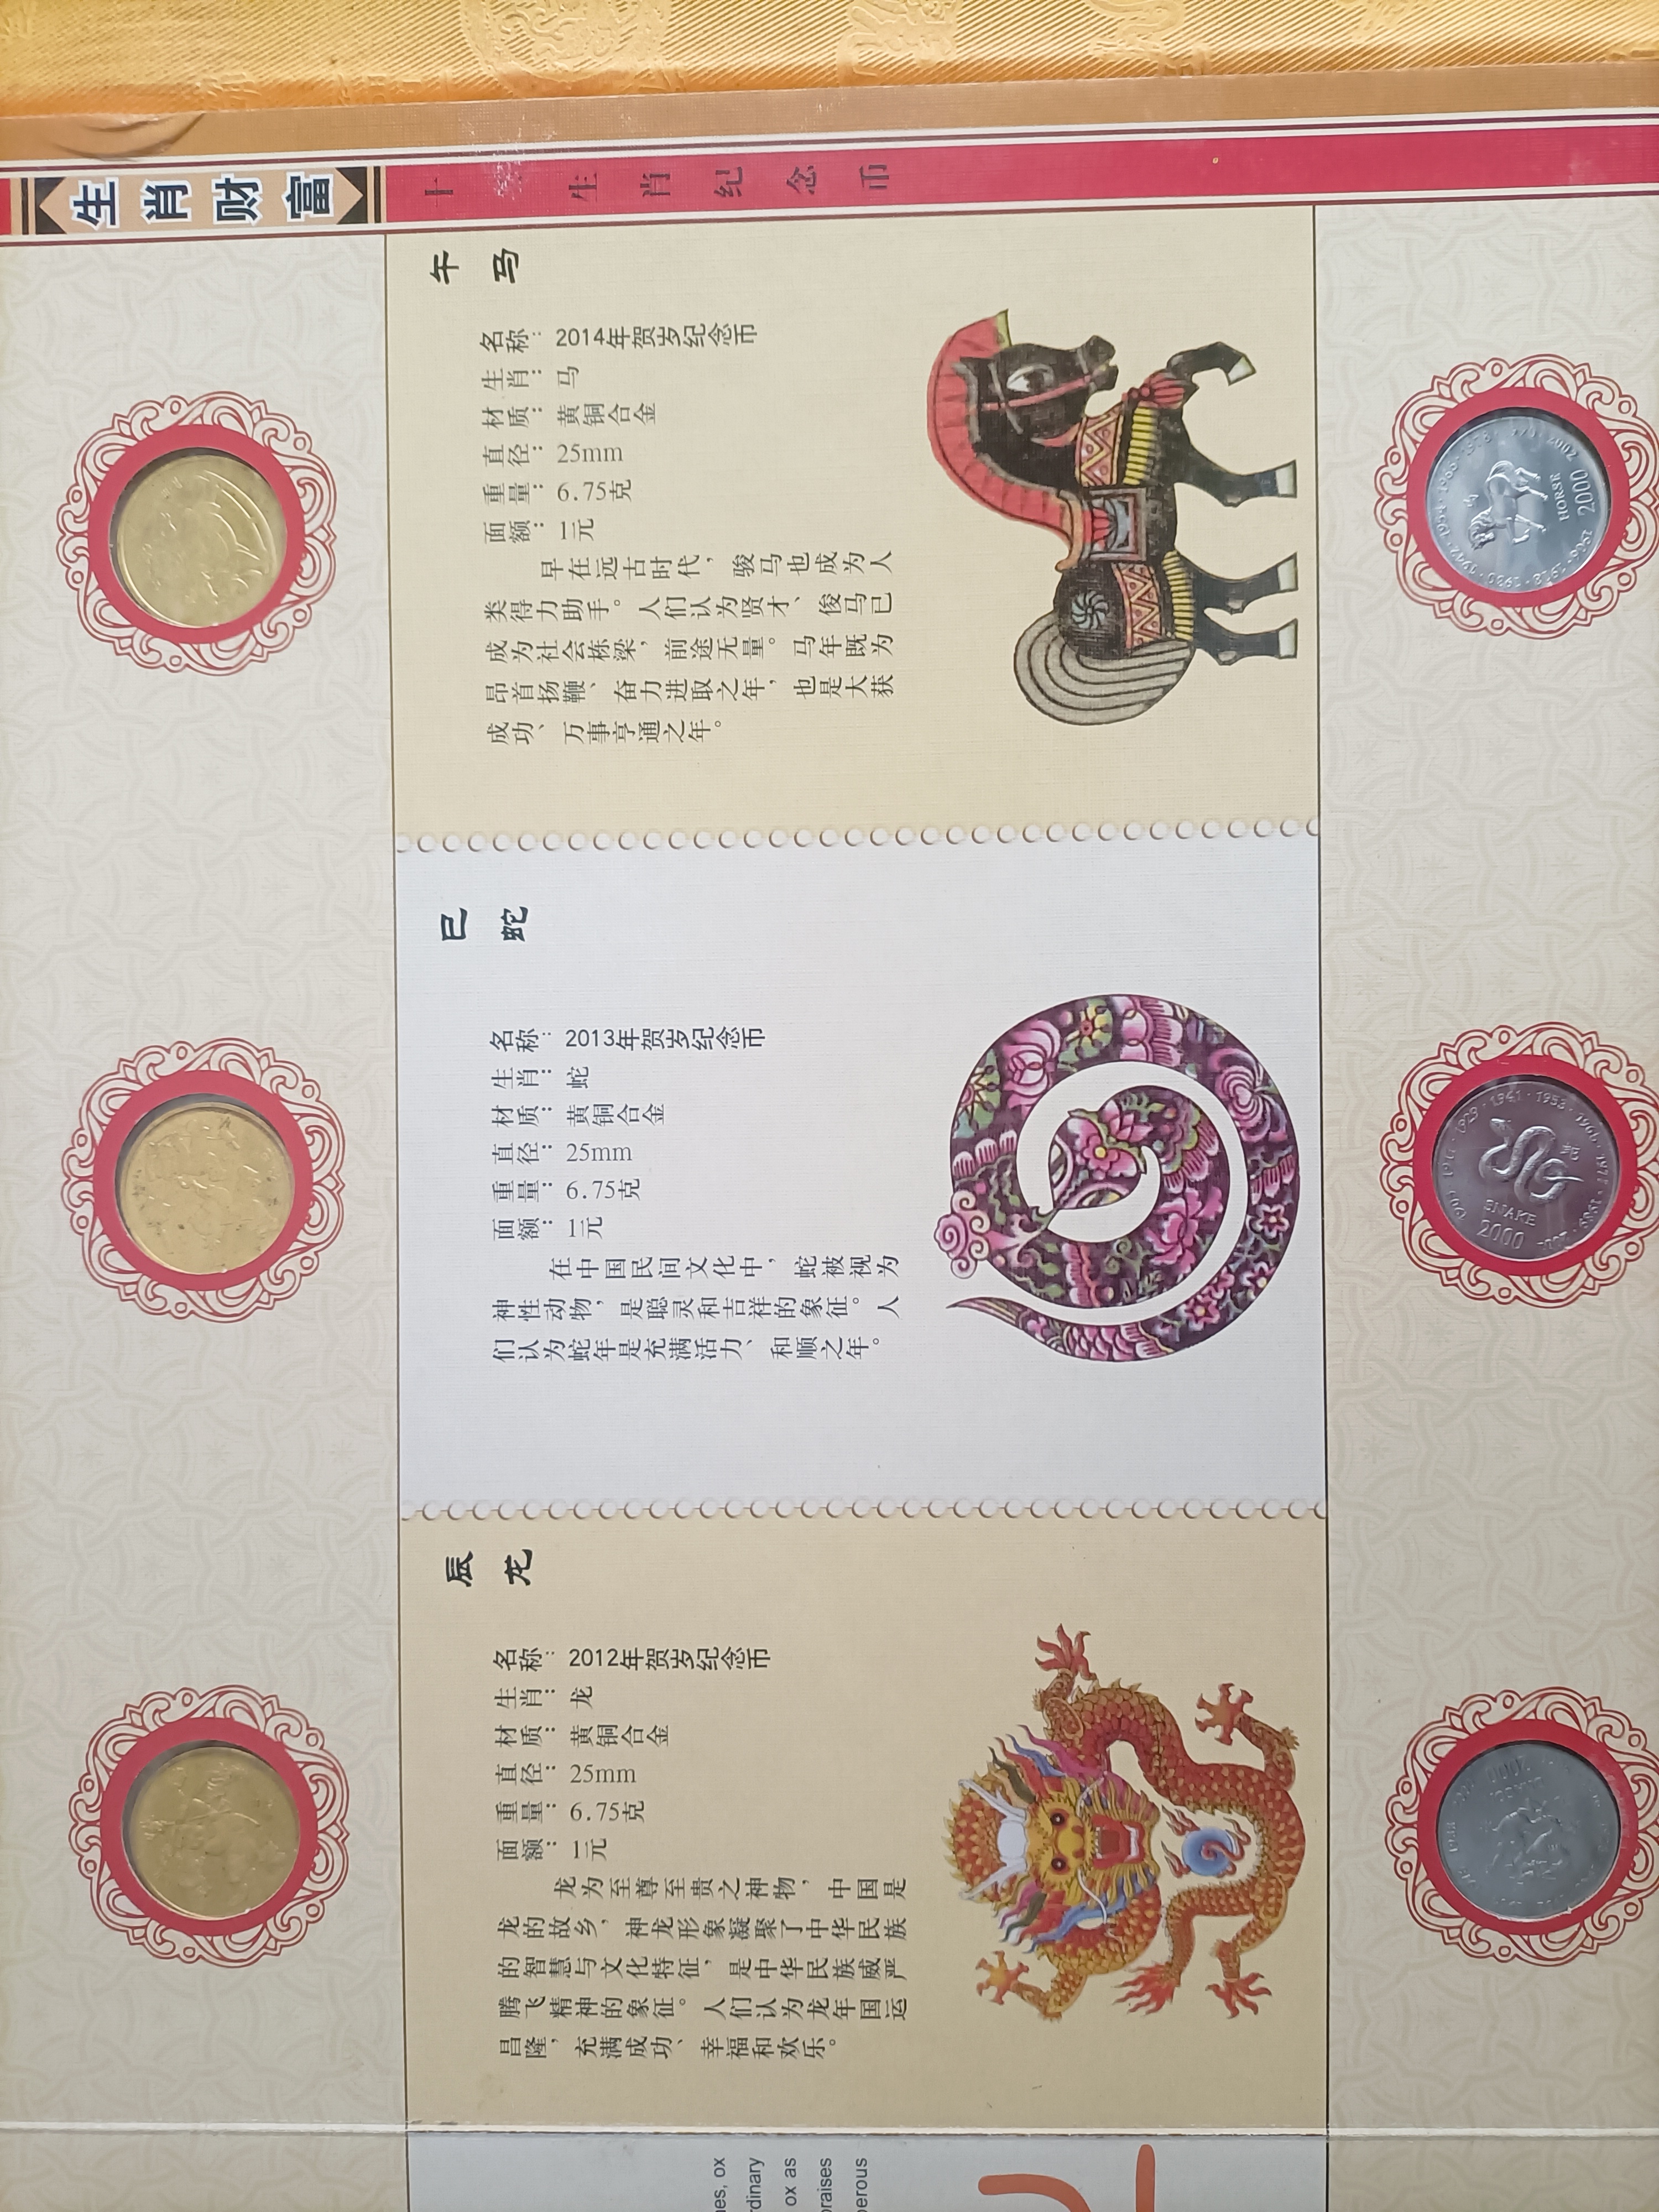 生肖财富
十 生肖纪念币
午马
名称：2014年贺岁纪念币
生肖：马
材质：黄铜合金
直径：25mm
重量：6.75克
面额：1元
早在远古时代，骏马也成为人
类得力助手。人们认为贤才、俊马已
成为社会栋梁，前途无量。马年既为
昂首扬鞭、奋力进取之年，也是大获
成功、万事亨通之年。
HORSE
2000
巳蛇
名称：2013年贺岁纪念币
生肖：蛇
材质：黄铜合金
直径：25mm
重量：6.75克
面额：1元
在中国民间文化中，蛇被视为
神性动物，是聪灵和吉祥的象征。人
们认为蛇年是充满活力、和顺之年。
1929 · 1941 · 1953
SNAKE
2000
辰龙
名称：2012年贺岁纪念币
生肖：龙
材质：黄铜合金
直径：25mm
重量：6.75克
面额：1元
龙为至尊至贵之神物，中国是
龙的故乡，神龙形象凝聚了中华民族
的智慧与文化特征，是中华民族威严
腾飞精神的象征。人们认为龙年国运
昌隆，充满成功、幸福和欢乐。
ox
ox as